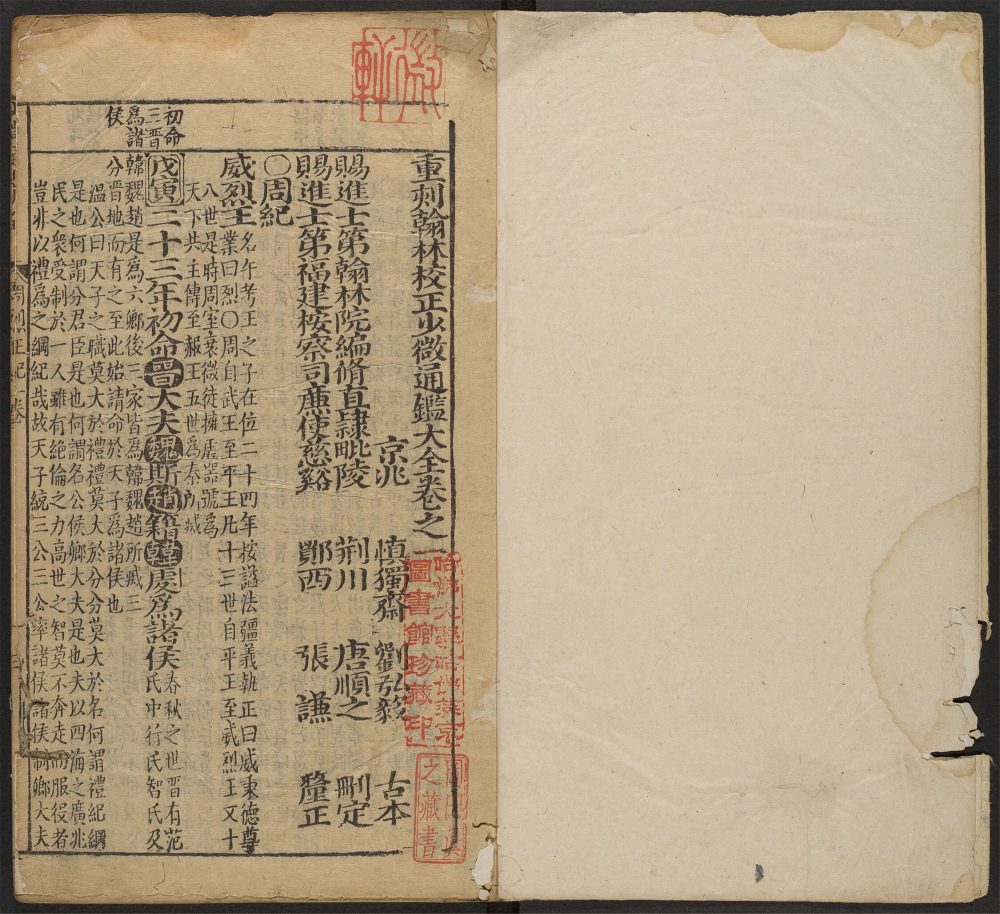 重刻翰林校正少微通鑑大全卷之一
京兆 慎獨齋 劉弘毅 古本
賜進士第翰林院編脩直隷毗陵 荆川 唐順之 刪定
賜進士第福建按察司㢘使慈谿 鄮西 張謙 釐正
〇周紀
威烈王
名午考王之子在位二十四年按謚法彊義執正曰威秉德尊
業曰烈〇周自武王至平王凡十三世自平王至威烈王又十
八世是時周室衰微徒擁虛器號爲
天下共主傳至赧王五世爲秦所滅
初命
三晋
爲諸
侯
戊寅二十三年初命晋大夫魏斯趙籍韓虔爲諸侯
春秋之世晋有范
氏中行氏智氏及
韓魏趙是爲六鄉後三家皆爲韓魏趙所滅三
分晋地而有之至此始請命於天子爲諸侯也
温公曰天子之職莫大於禮禮莫大於分分莫大於名何謂禮紀綱
是也何謂分君臣是也何謂名公侯鄉大夫是也夫以四海之廣兆
民之衆受制於一人雖有絶倫之力高世之智莫不奔走而服役者
豈非以禮爲之綱紀哉故天子統三公三公率諸侯諸侯制鄉大夫
哈佛大學哈佛燕京
圖書館珍藏印
之藏書